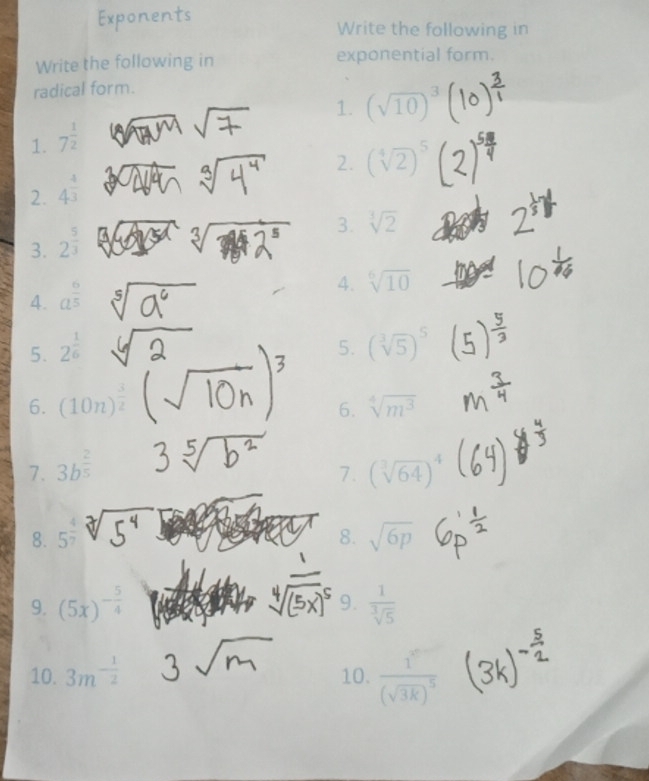 Exponents
Write the following in
radical form.
1. 7^{1/2} √7
2. 4^{4/3} ∛(4^4)
3. 2^{5/3} ∛(2^5)
4. a^{6/5} ⁵√(a^6)
5. 2^{1/6} ⁶√2
6. (10n)^{3/2} (√10n)^3
7. 3b^{2/5} 3 ⁵√(b^2)
8. 5^{4/7} ⁷√(5^4)
9. (5x)^{-5/4} 1/⁴√(5x)^5
10. 3m^{-1/2} 3√m
Write the following in
exponential form.
1. (√10)^3 (10)^{3/1}
2. (⁴√2)^5 (2)^{5/4}
3. ∛2 2^{1/3}
4. ⁶√10 10^{1/6}
5. (∛5)^5 (5)^{5/3}
6. ⁴√m^3 m^{3/4}
7. (∛64)^4 (64)^{4/3}
8. √6p 6p^{1/2}
9. 1/∛5
10. 1/(√3k)^5 (3k)^{-5/2}